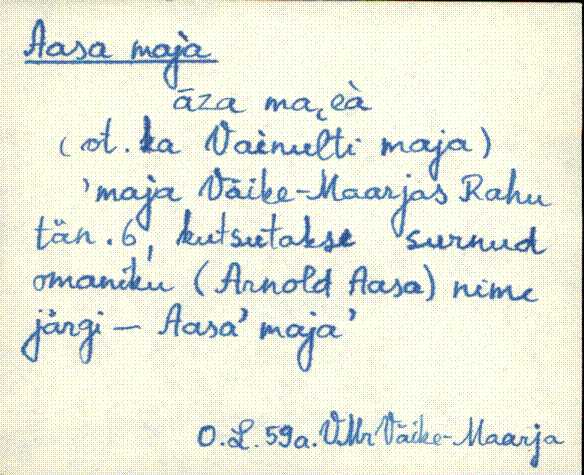 Aasa maja
āza ma͔eà
(vt. ka Vainulti maja)
'maja Väike-Maarjas Rahu
tän. 6, kutsutakse surnud
omaniku (Arnold Aasa) nime
järgi — Aasa' maja'
O.L. 59a. VMr Väike-Maarja